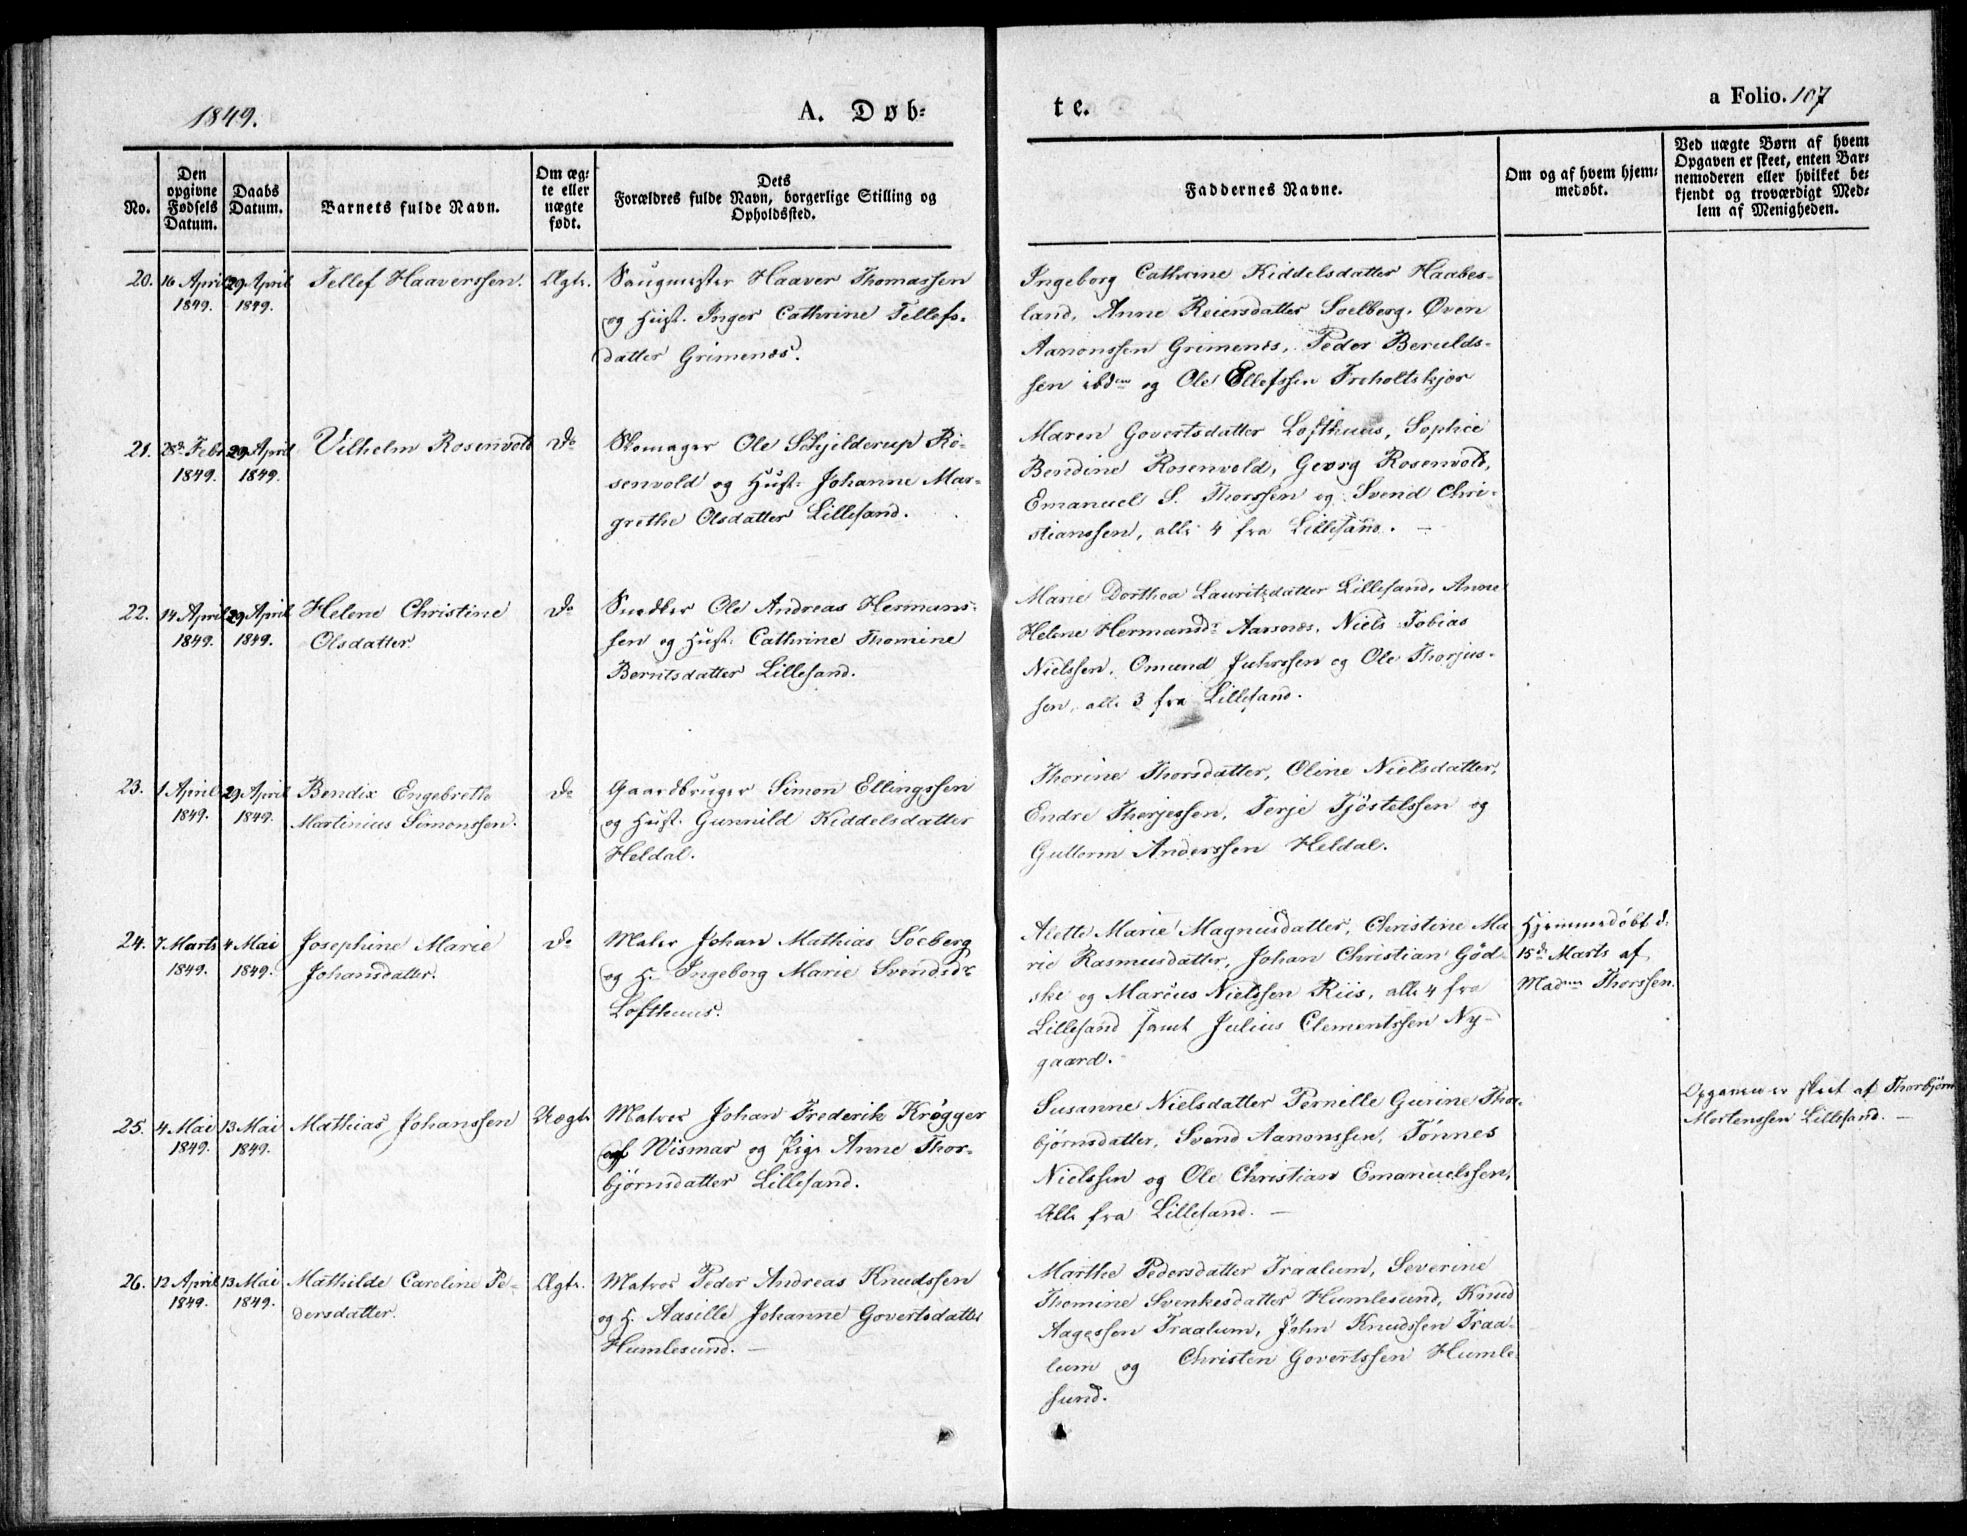 1849.
A. Døb-
te.
a Folio. 107
No.
Den opgivne Fødsels Datum.
Daabs Datum.
Barnets fulde Navn.
Om ægte eller uægte født.
Dets Forældres fulde Navn, borgerlige Stilling og Opholdssted.
Faddernes Navne.
Om og af hvem hjemmedøbt.
Ved uægte Børn af hvem
Opgaven er skeet, enten Bar-
nemoderen eller hvilket be-
kjendt og troværdigt Med-
lem af Menigheden.
20. 16 April 1849. 29 April 1849. Tellef Haaverssen. Ægte.
Saugmester Haaver Thomassen
og Hust. Inger Cathrine Tellefs-
datter Grimenes.
Ingeborg Cathrine Kiddelsdatter Haabes-
land, Anne Reiersdatter Soelberg, Øven
Aanonssen Grimenes, Peder Berulds-
sen ibdm og Ole Ellefssen Treholtskjær
21. 28de Febr 1849. 29 April 1849. Vilhelm Rosenvold Do
Skomager Ole Schjelderup Ro-
senvold og Hust: Johanne Mar-
grethe Olsdatter Lillesand.
Maren Govertsdatter Lofthuus, Sophie
Bendine Rosenvold, Georg Rosenvold,
Emanuel S. Thorssen og Svend Chri-
stianssen, alle 4 fra Lillesand. —
22. 14 April 1849. 29 April 1849. Helene Christine
Olsdatter. Do
Snedker Ole Andreas Hermans-
sen og Hust. Cathrine Thomine
Berntsdatter Lillesand.
Marie Dorthea Lauritzdatter Lillesand, Anne
Helene Hermandr Aarsnes, Niels Tobias
Nielssen, Omund Juhrssen og Ole Thorjus-
sen, alle 3 fra Lillesand.
23. 1 April 1849. 29 April 1849. Bendix Engebrette
Martinius Simonssen. Do
Gaardbruger Simon Ellingssen
og Hust. Gunnild Kiddelsdatter
Heldal.
Thorine Thorsdatter, Oline Nielsdatter,
Endre Therjessen, Terje Tjöstelssen og
Guttorm Anderssen Heldal.
24. 7 Marts 1849. 4 Mai 1849. Josephine Marie
Johansdatter. Do
Maler Johan Mathias Söeberg
og H. Ingeborg Marie Svendsdr
Lofthuus.
Alette Marie Magnusdatter, Christine Ma
rie Rasmusdatter, Johan Christian Göd-
ske og Marcus Nielssen Riis, alle 4 fra
Lillesand samt Julius Clementssen Ny-
gaard.
Hjemmedöbt d:
15de Marts af
Madm Thorssen.
25. 4 Mai 1849. 13 Mai 1849. Mathias Johanssen Uægte
Matros Johan Frederik Krögger
af Wismar og Pige Anne Thor-
björnsdatter Lillesand.
Susanne Nielsdatter Pernille Gurine Thor-
björnsdatter, Svend Aanonssen, Tönnes
Nielssen og Ole Christian Emanuelssen,
Alle fra Lillesand. —
Opgaven er skeet af Thorbjörn
Mortenssen Lillesand. —
26. 12 April 1849. 13 Mai 1849. Mathilde Caroline Pe-
dersdatter. Ægte.
Matros Peder Andreas Knudssen
og H. Aasille Johanne Govertsdatter
Humlesund. —
Marthe Pedersdatter Traalum, Severine
Thomine Svenkesdatter Humlesund, Knud
Aagessen Traalum, John Knudssen Traa-
lum og Christen Govertssen Humle-
sund.